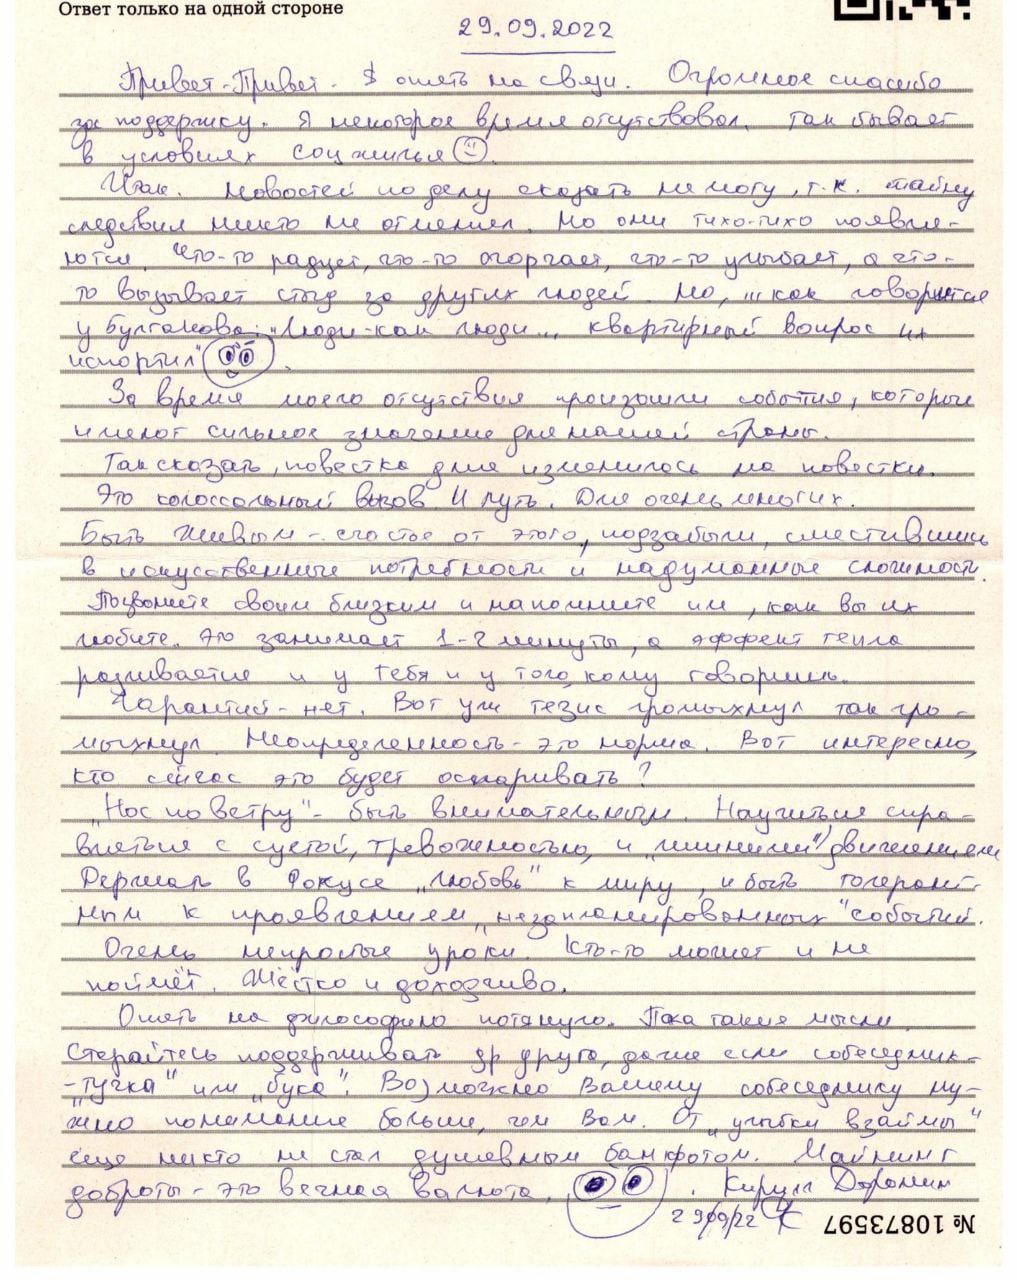 Ответ только на одной стороне
29.09.2022
Привет-Привет. Я опять на связи. Огромное спасибо
за поддержку. Я некоторое время отсутствовал. Так бывает
в условиях соц жилья
Итак. Новостей по делу сказать не могу, т.к. тайну
следствия никто не отменил. Но они тихо-тихо появля-
ются. Что-то радует, что-то огорчает, что-то улыбает, а что-
то вызывает стыд за других людей. Но, ... как говорится
у Булгакова: "Люди-как люди... квартирный вопрос их
испортил"
За время моего отсутствия произошли события, которые
имеют сильное значение для нашей страны.
Так сказать, повестка дня изменилась на повестки.
Это колоссальный вызов. И путь. Для очень многих.
Быть живым - счастье от этого, подзабыли, сместившись
в искусственные потребности и надуманные сложности.
Позвоните своим близким и напомните им, как вы их
любите. Это занимает 1-2 минуты, а эффект тепла
разливается и у тебя и у того, кому говоришь.
Гарантий - нет. Вот уж тезис громыхнул так гро-
мыхнул. Неопределенность - это норма. Вот интересно,
кто сейчас это будет оспаривать?
"Нос по ветру" - быть внимательным. Научиться спра-
вляться с суетой, тревожностью, и "лишними" движениями
Держать в фокусе "любовь" к миру, и быть толерант-
ным к проявлениям "незапланированных" событий.
Очень непростые уроки. Кто-то может и не
поймёт. Жёстко и доходчиво.
Опять на философию потянуло. Пока такие мысли.
Старайтесь поддерживать др друга, даже если собеседник-
-"тучка" или "бука". Возможно Вашему собеседнику ну-
жно понимание больше, чем Вам. От "улыбки взаймы"
еще никто не стал душевным банкротом. Майнинг
доброты - это вечная валюта. Кирилл Доронин
29/09/22
№ 10873597